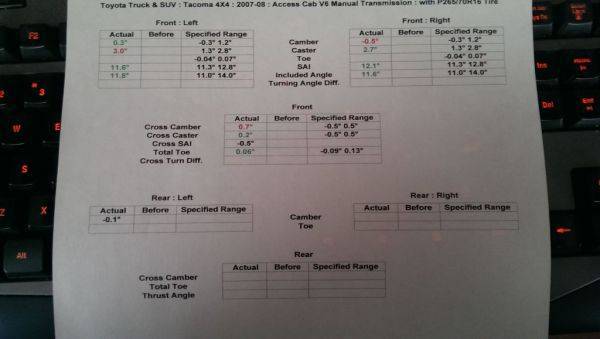 Toyota Truck & SUV : Tacoma 4X4 : 2007-08 : Access Cab V6 Manual Transmission : with P265/70R16 Tire
Front : Left
Front : Right
Actual Before Specified Range
Actual Before Specified Range
0.3° -0.3° 1.2° Camber -0.5° -0.3° 1.2°
3.0° 1.3° 2.8° Caster 2.7° 1.3° 2.8°
-0.04° 0.07° Toe -0.04° 0.07°
11.6° 11.3° 12.8° SAI 12.1° 11.3° 12.8°
11.8° 11.0° 14.0° Included Angle 11.6° 11.0° 14.0°
Turning Angle Diff.
Front
Actual Before Specified Range
Cross Camber 0.7° -0.5° 0.5°
Cross Caster 0.2° -0.5° 0.5°
Cross SAI -0.5°
Total Toe 0.06° -0.09° 0.13°
Cross Turn Diff.
Rear : Left
Rear : Right
Actual Before Specified Range
Actual Before Specified Range
-0.1° Camber
Toe
Rear
Actual Before Specified Range
Cross Camber
Total Toe
Thrust Angle
F2
3
2
W
E
S
Z
X
Alt
Del
End
Ent